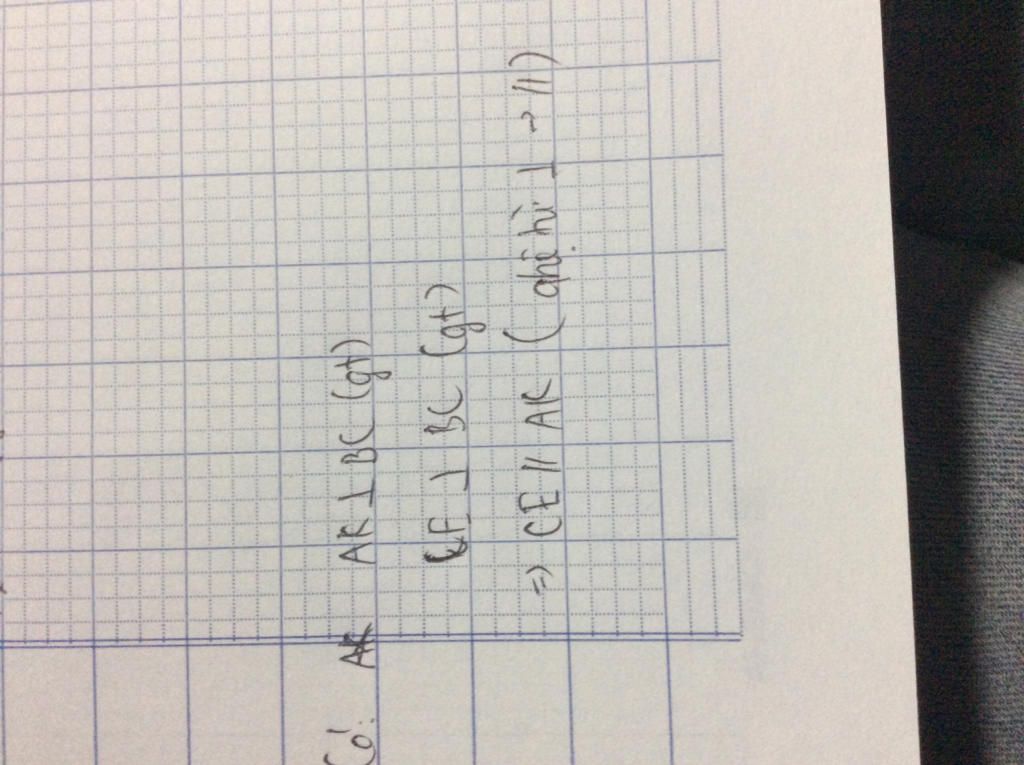 Có: AK ⊥ BC (gt)
CE ⊥ BC (gt)
=> CE // AK (qhệ từ ⊥ → //)